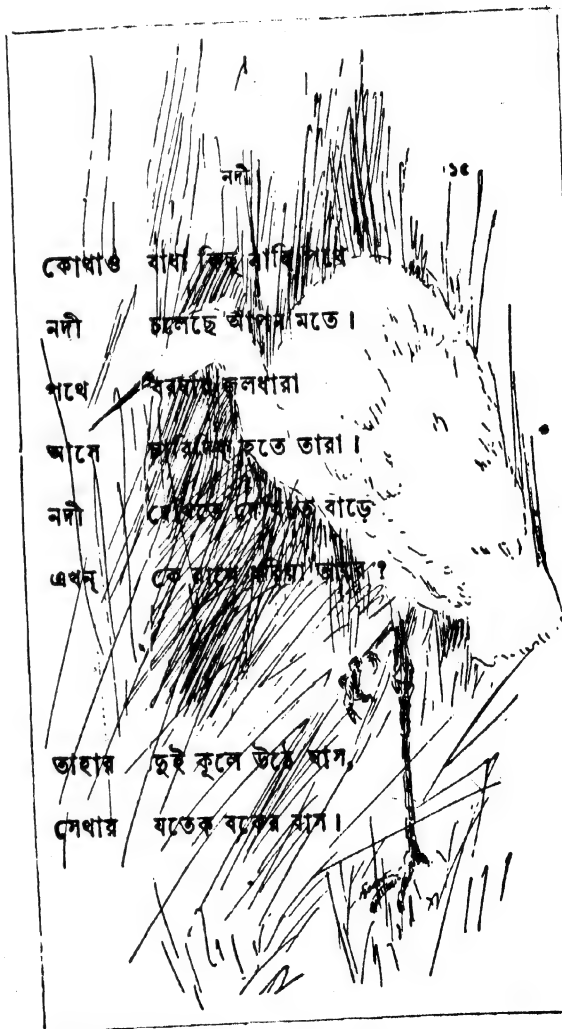 নদী ১৫
কোথাও বাধা কিছু নাহি পথে
নদী চলেছে আপন মতে।
পথে বরষার জলধারা
আসে চারিদিক হতে তারা।
নদী দেখিতে দেখিতে বাড়ে
এখন্ কে রাখে ধরিয়া তাহারে ?
তাহার দুই কূলে উঠে ঘাস,
সেথায় যতেক বকের বাস।